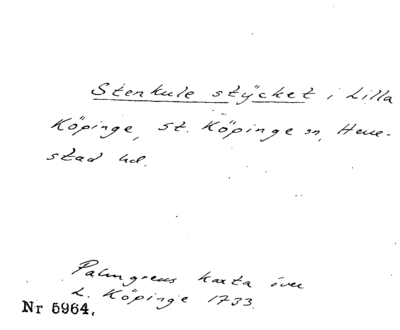 Stenkule stÿcket i Lilla
Köpinge, St. Köpinge sn, Herre-
stad hd.
Palmgrens karta över
L. Köpinge 1733.
Nr 5964.